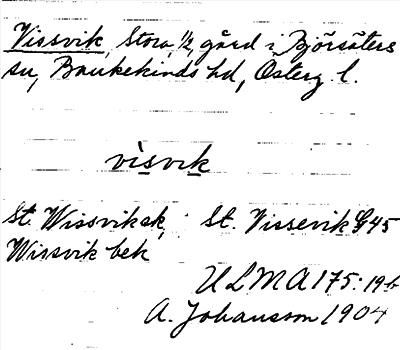 Vissvik, Stora, 1/2, gård i Björsäters
sn, Bankekinds hd, Österg. l.
visvik
St. Wissvik sk, St. Vissevik G 45
Wissvik bek
ULMA 175: 19
A. Johansson 1904